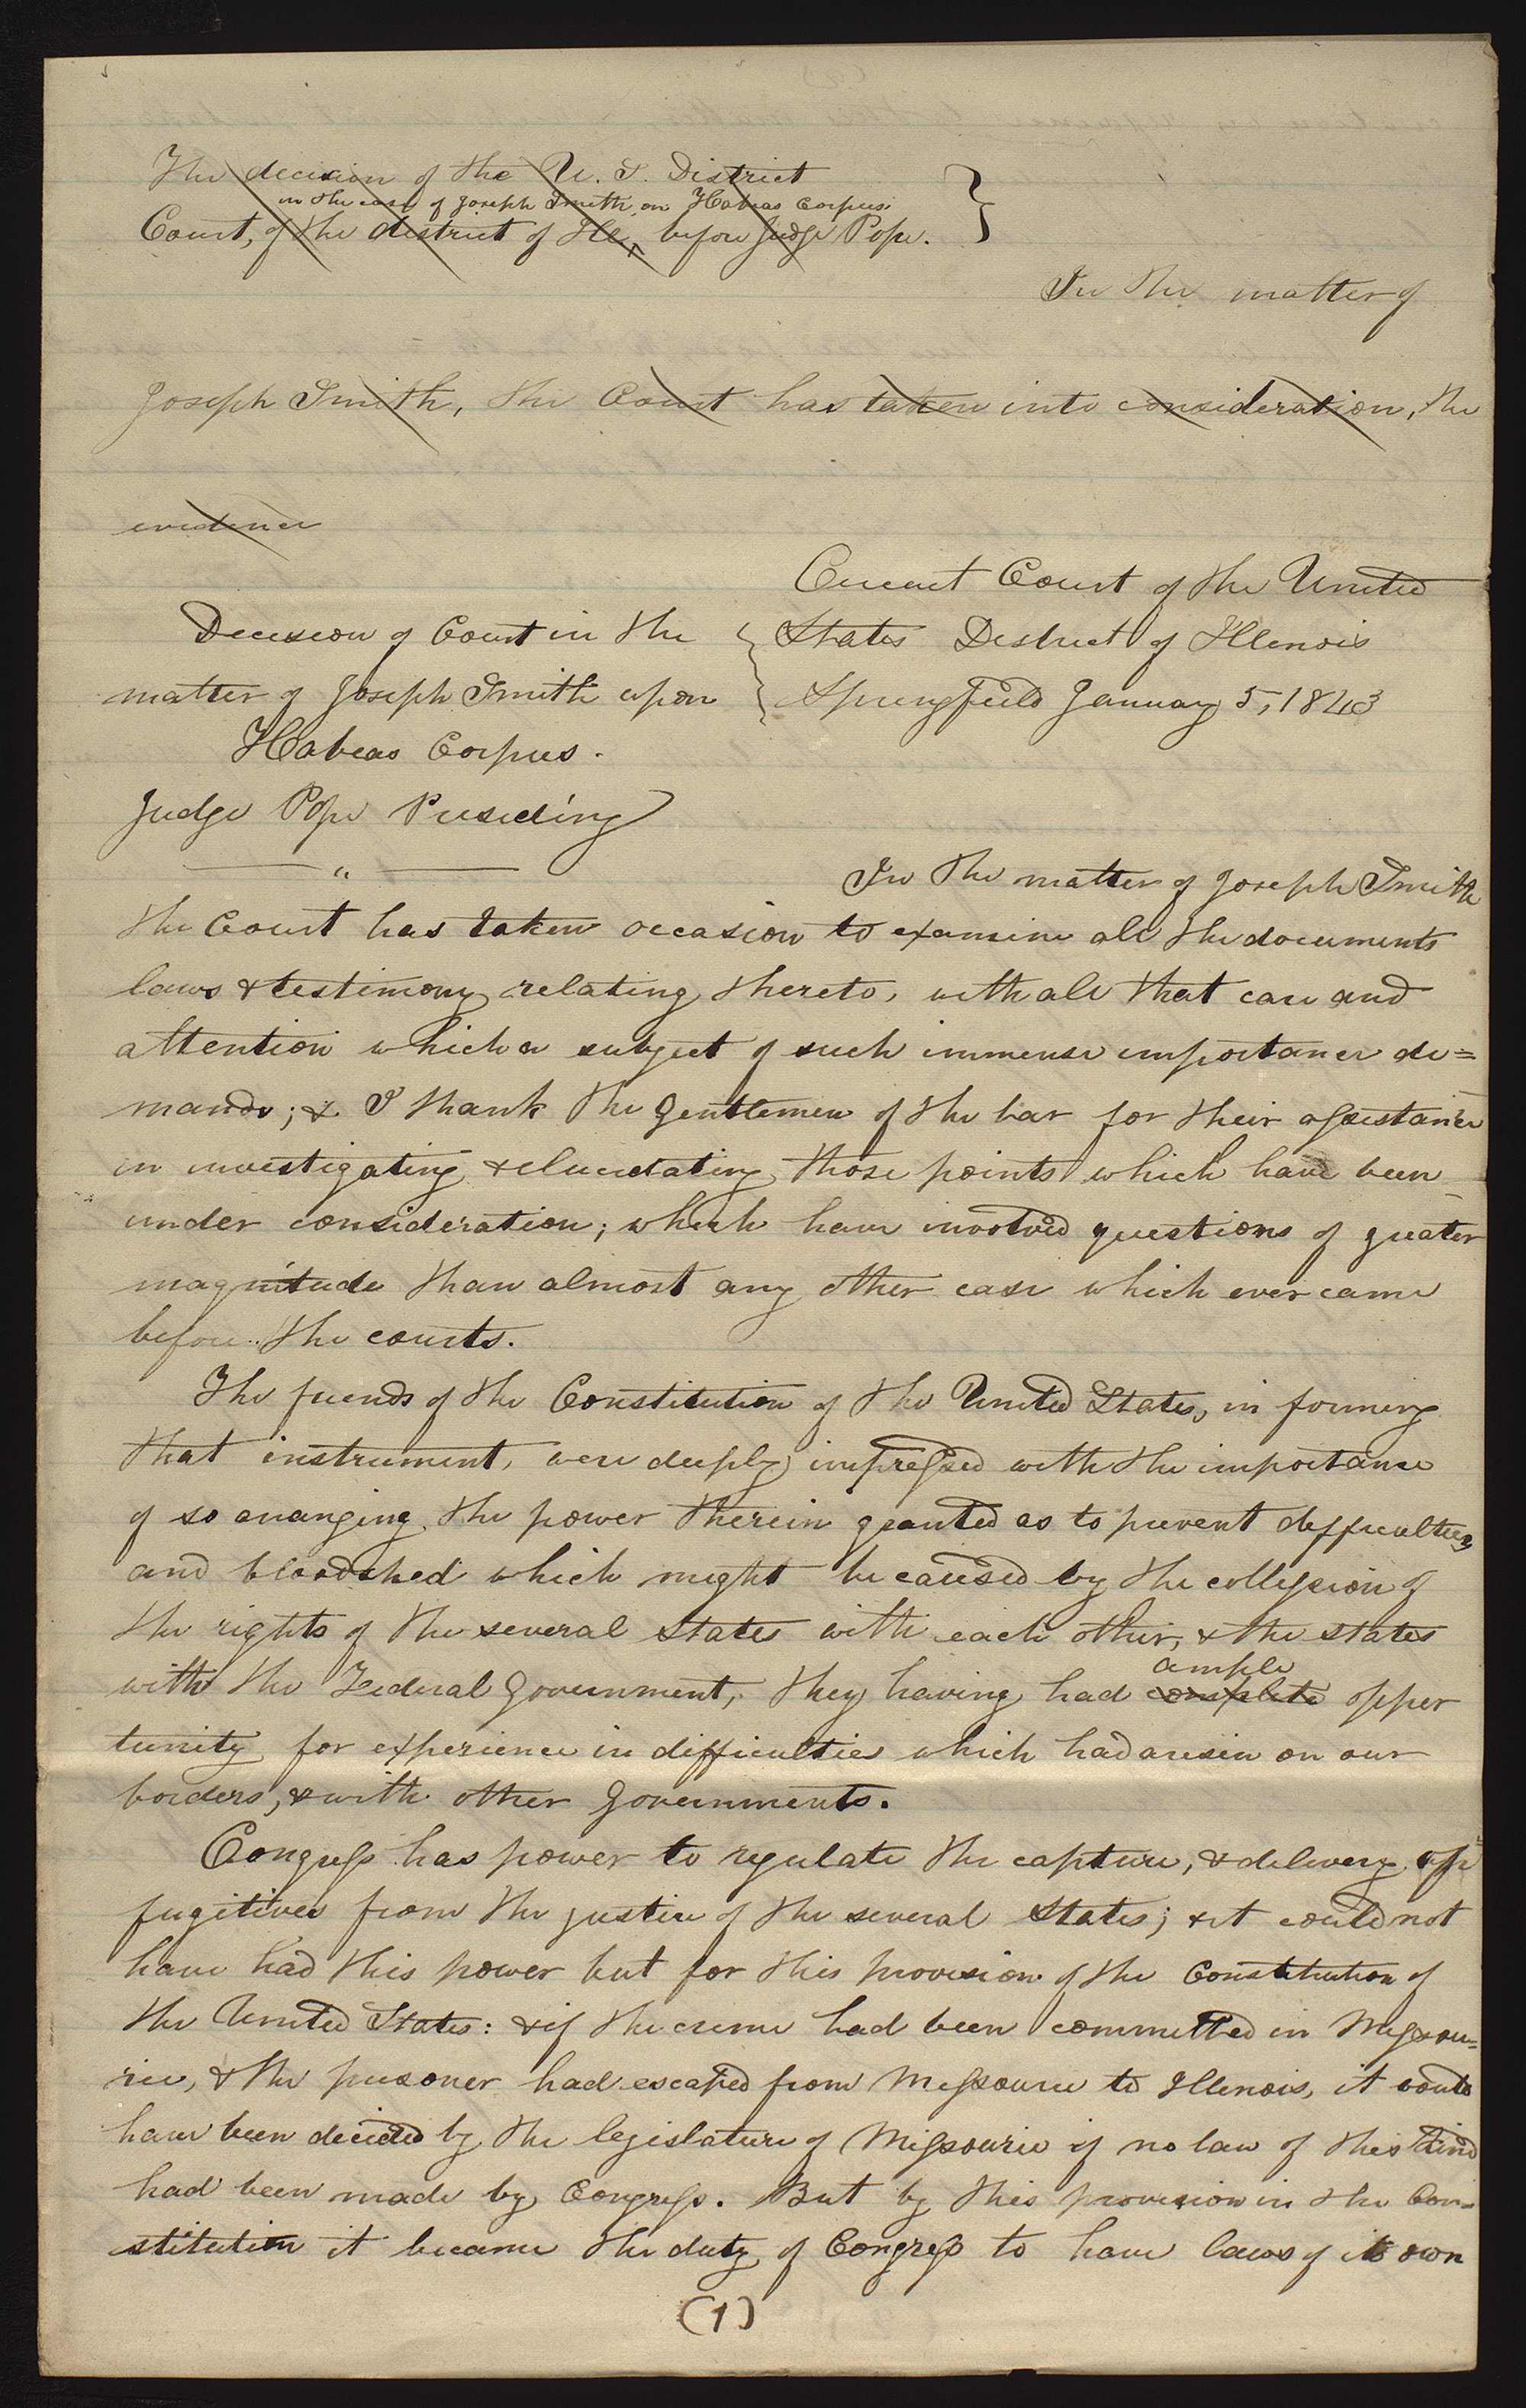 The decision of the U. S. District
in the case of Joseph Smith on Habeas Corpus.
Court, of the district of Ill, before Judge Pope.
In the matter of
Joseph Smith, the Court has taken into consideration, the
evidence
Circuit Court of the United
Decision of Court in the States District of Illinois
matter of Joseph Smith upon Springfield January 5, 1843
Habeas Corpus.
Judge Pope Presiding
"
In the matter of Joseph Smith
the Court has taken occasion to examine all the documents
laws & testimony relating thereto, with all that care and
attention which a subject of such immense importance de=
mands; & I thank the Gentlemen of the bar for their assistance
in investigating & elucidating those points which have been
under consideration; which have involved questions of greater
magnitude than almost any other case which ever came
before the courts.
The friends of the Constitution of the United States, in forming
that instrument, were deeply impressed with the importance
of so arranging the power therein granted as to prevent difficulties
and bloodshed which might be caused by the collission of
the rights of the several states with each other, & the states
ample
with the Federal Government, they having had complete opper
tunity for experience in difficulties which had arisin on our
borders, & with other Governments.
Congress has power to regulate the capture, & delivery of
fugitives from the justice of the several States; & it could not
have had this power but for this provision of the Constitution of
the United States: & if the crime had been committed in Missou=
rie, & the prisoner had escaped from Missourie to Illinois, it would
have been decided by the legislature of Missourie if no law of this kind
had been made by Congress. But by this provision in the Con=
stitution it became the duty of Congress to have laws of its own
(1)